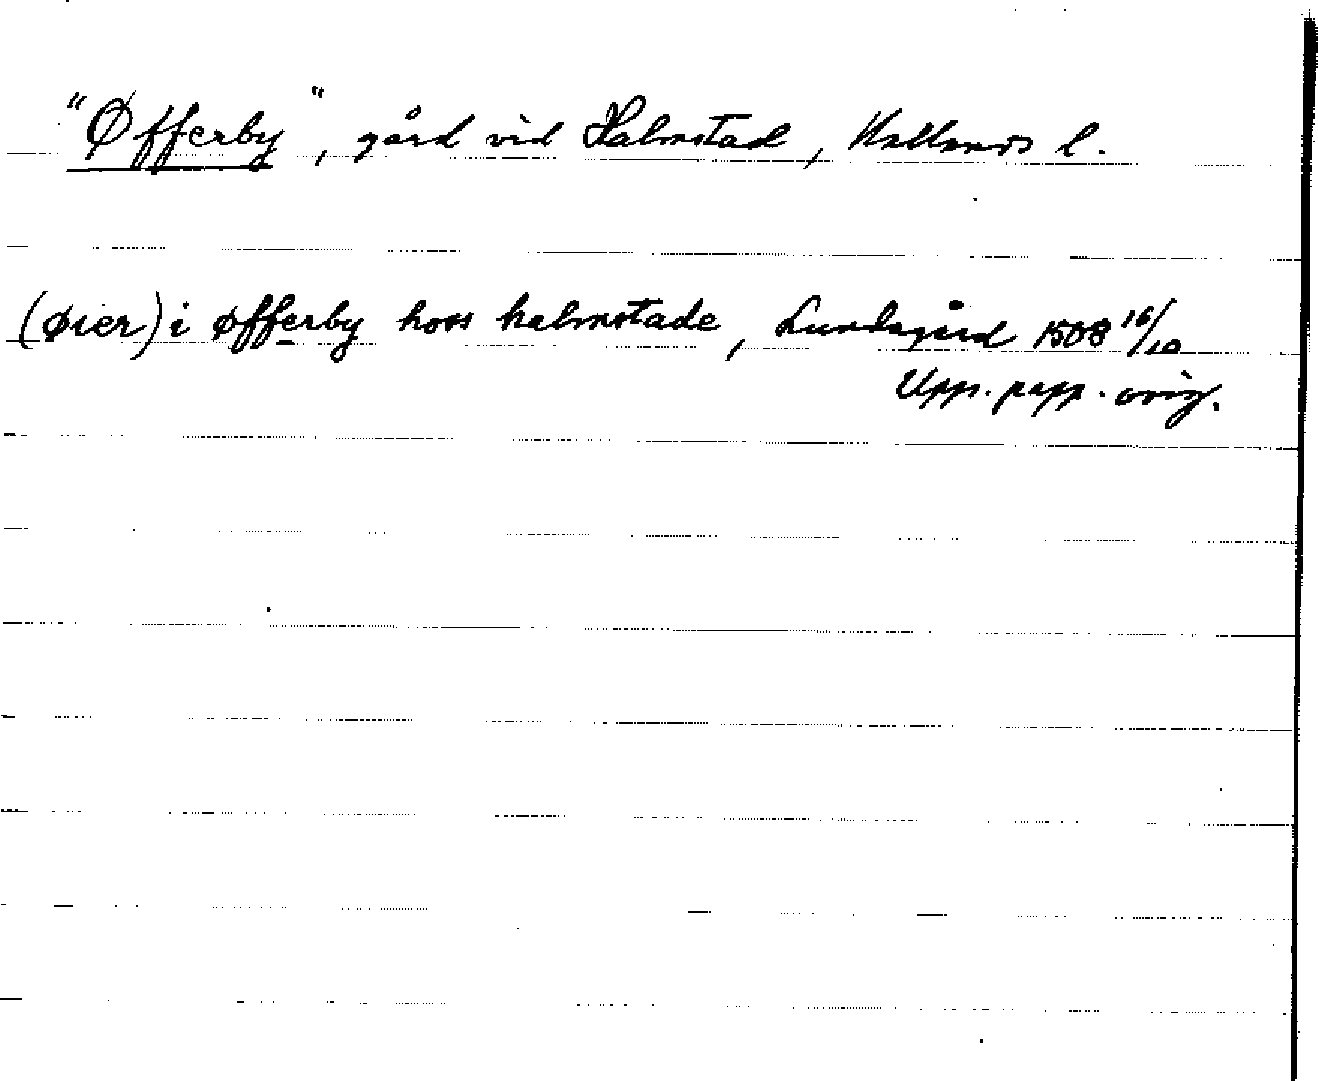 "Øfferby", gård vid Halmstad, Hallands l.
(øier) i øfferby hoss halmstade, Lundsgård 1508 16/10
Upps. papp. orig.